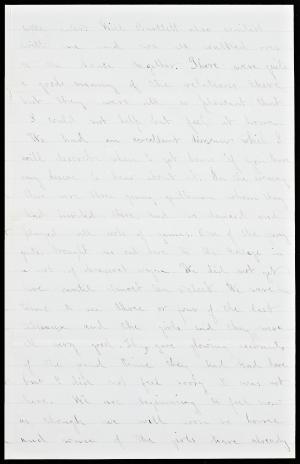 were there. Will Bartlett also waited
with me and we all walked over
to the house together. There were quite
a good many of the relations there
but they were all so pleasant that
I could not help but feel at home.
We had an excellent dinner which I
will describe when I get home if you have
any desire to hear about it. In the evening
there were three young gentlemen whom they
had invited there and we danced and
played all sorts of games. One of the young
gents. brought us out here to the
in a sort of covered wagon. We did not get
here until almost ten o'clock. We were in
time to see three or four of the last
and the girls said they were
all very good. They gave glowing accounts
of the good times they had had here
but I did not feel sorry I was not
here. We are beginning to feel now
as though we will soon be home
and some of the girls have already